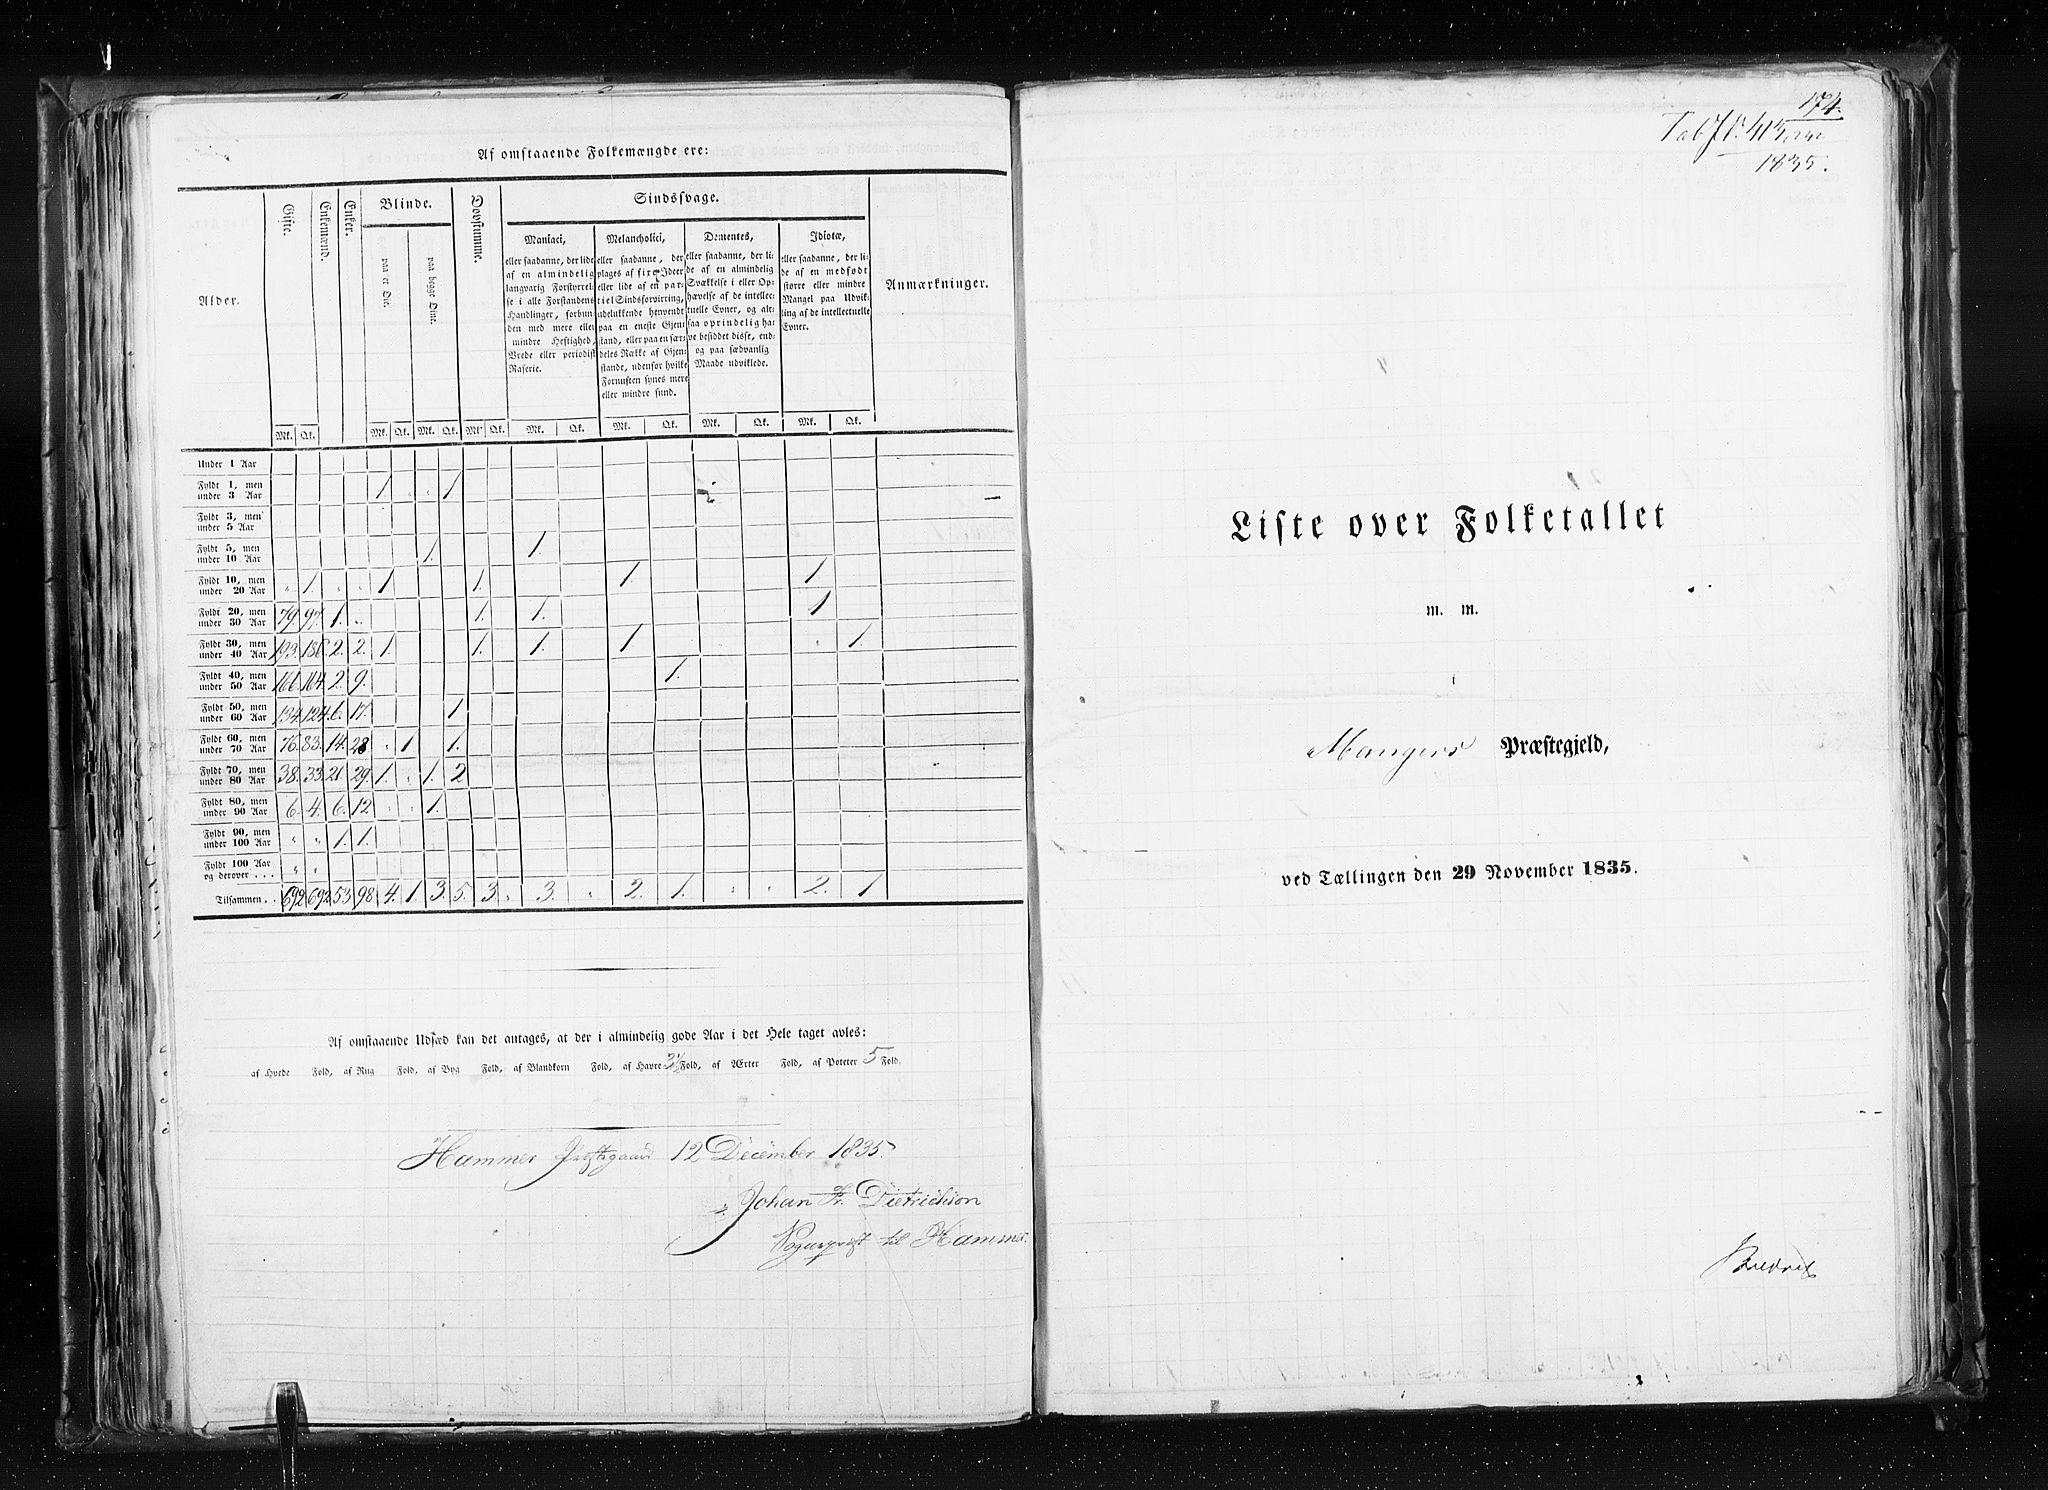 Af omstaaende Folkemængde ere:
Alder.
Gifte.
Enkemænd.
Enker.
Blinde.
paa et Øie.
paa begge Øine.
Døvstumme.
Sindssvage.
Maniaci,
eller saadanne, der lide
af en almindelig
langvarig Forstyrrel-
se i alle Forstandens
Handlinger, forbun
den med mere eller
mindre Heftighed,
Vrede eller periodisk
Raserie.
Melancholici,
eller saadanne, der
plages af fixe Ideer
eller lide af en par-
tiel Sindsforvirring,
udelukkende henvendt
paa en eneste Gjen-
stand, eller paa en sær-
deles Række af Gjen-
stande, udenfor hvilke
Fornuften synes mere
eller mindre sund.
Dementes,
eller saadanne, der li-
de af en almindelig
Svækkelse i eller Op-
hævelse af de intellec-
tuelle Evner, og alt-
saa oprindelig ha-
ve besiddet disse, end-
og paa sædvanlig
Maade udviklede.
Idiotæ,
eller saadanne, der li-
de af en medfødt
større eller mindre
Mangel paa Udvik-
ling af de intellectuelle
Evner.
Anmærkninger.
Mk. Qk. Mk. Qk. Mk. Qk. Mk. Qk. Mk. Qk. Mk. Qk. Mk. Qk. Mk. Qk.
Under 1 Aar
Fyldt 1, men under 3 Aar 1 1
Fyldt 3, men under 5 Aar
Fyldt 5, men under 10 Aar 1. 1
Fyldt 10, men under 20 Aar " 1. " " 1 1. 1. 1
Fyldt 20, men under 30 Aar 79. 97. 1. " 1. 1. 1
Fyldt 30, men under 40 Aar 193. 186. 2. 2. 1. 1. 1. 1 " 1.
Fyldt 40, men under 50 Aar 166. 164. 2. 9. 1.
Fyldt 50, men under 60 Aar 134. 124. 6. 17. 1
Fyldt 60, men under 70 Aar 76. 83. 14. 28 " 1 1.
Fyldt 70, men under 80 Aar 38. 33. 21. 29. 1. " 1. 2
Fyldt 80, men under 90 Aar 6. 4. 6. 12 " " 1.
Fyldt 90, men under 100 Aar " " 1. 1.
Fyldt 100 Aar og derover . . . " "
Tilsammen . . 692 692 53 98 4. 1 3. 5. 3 " 3. " 2. 1. " " 2. 1
Af omstaaende Udsæd kan det antages, at der i almindelig gode Aar i det Hele taget avles:
af Hvede Fold, af Rug Fold, af Byg Fold, af Blandkorn Fold, af Havre 3½ Fold, af Ærter Fold, af Poteter 5 Fold.
Hammer Præstegaard 12 December 1835.
Johan Fr. Dietrichson
Sognepræst til Hammer.
174.
1835.
Liste over Folketallet
m. m.
i
Mangers Præstegjeld,
ved Tællingen den 29 November 1835.